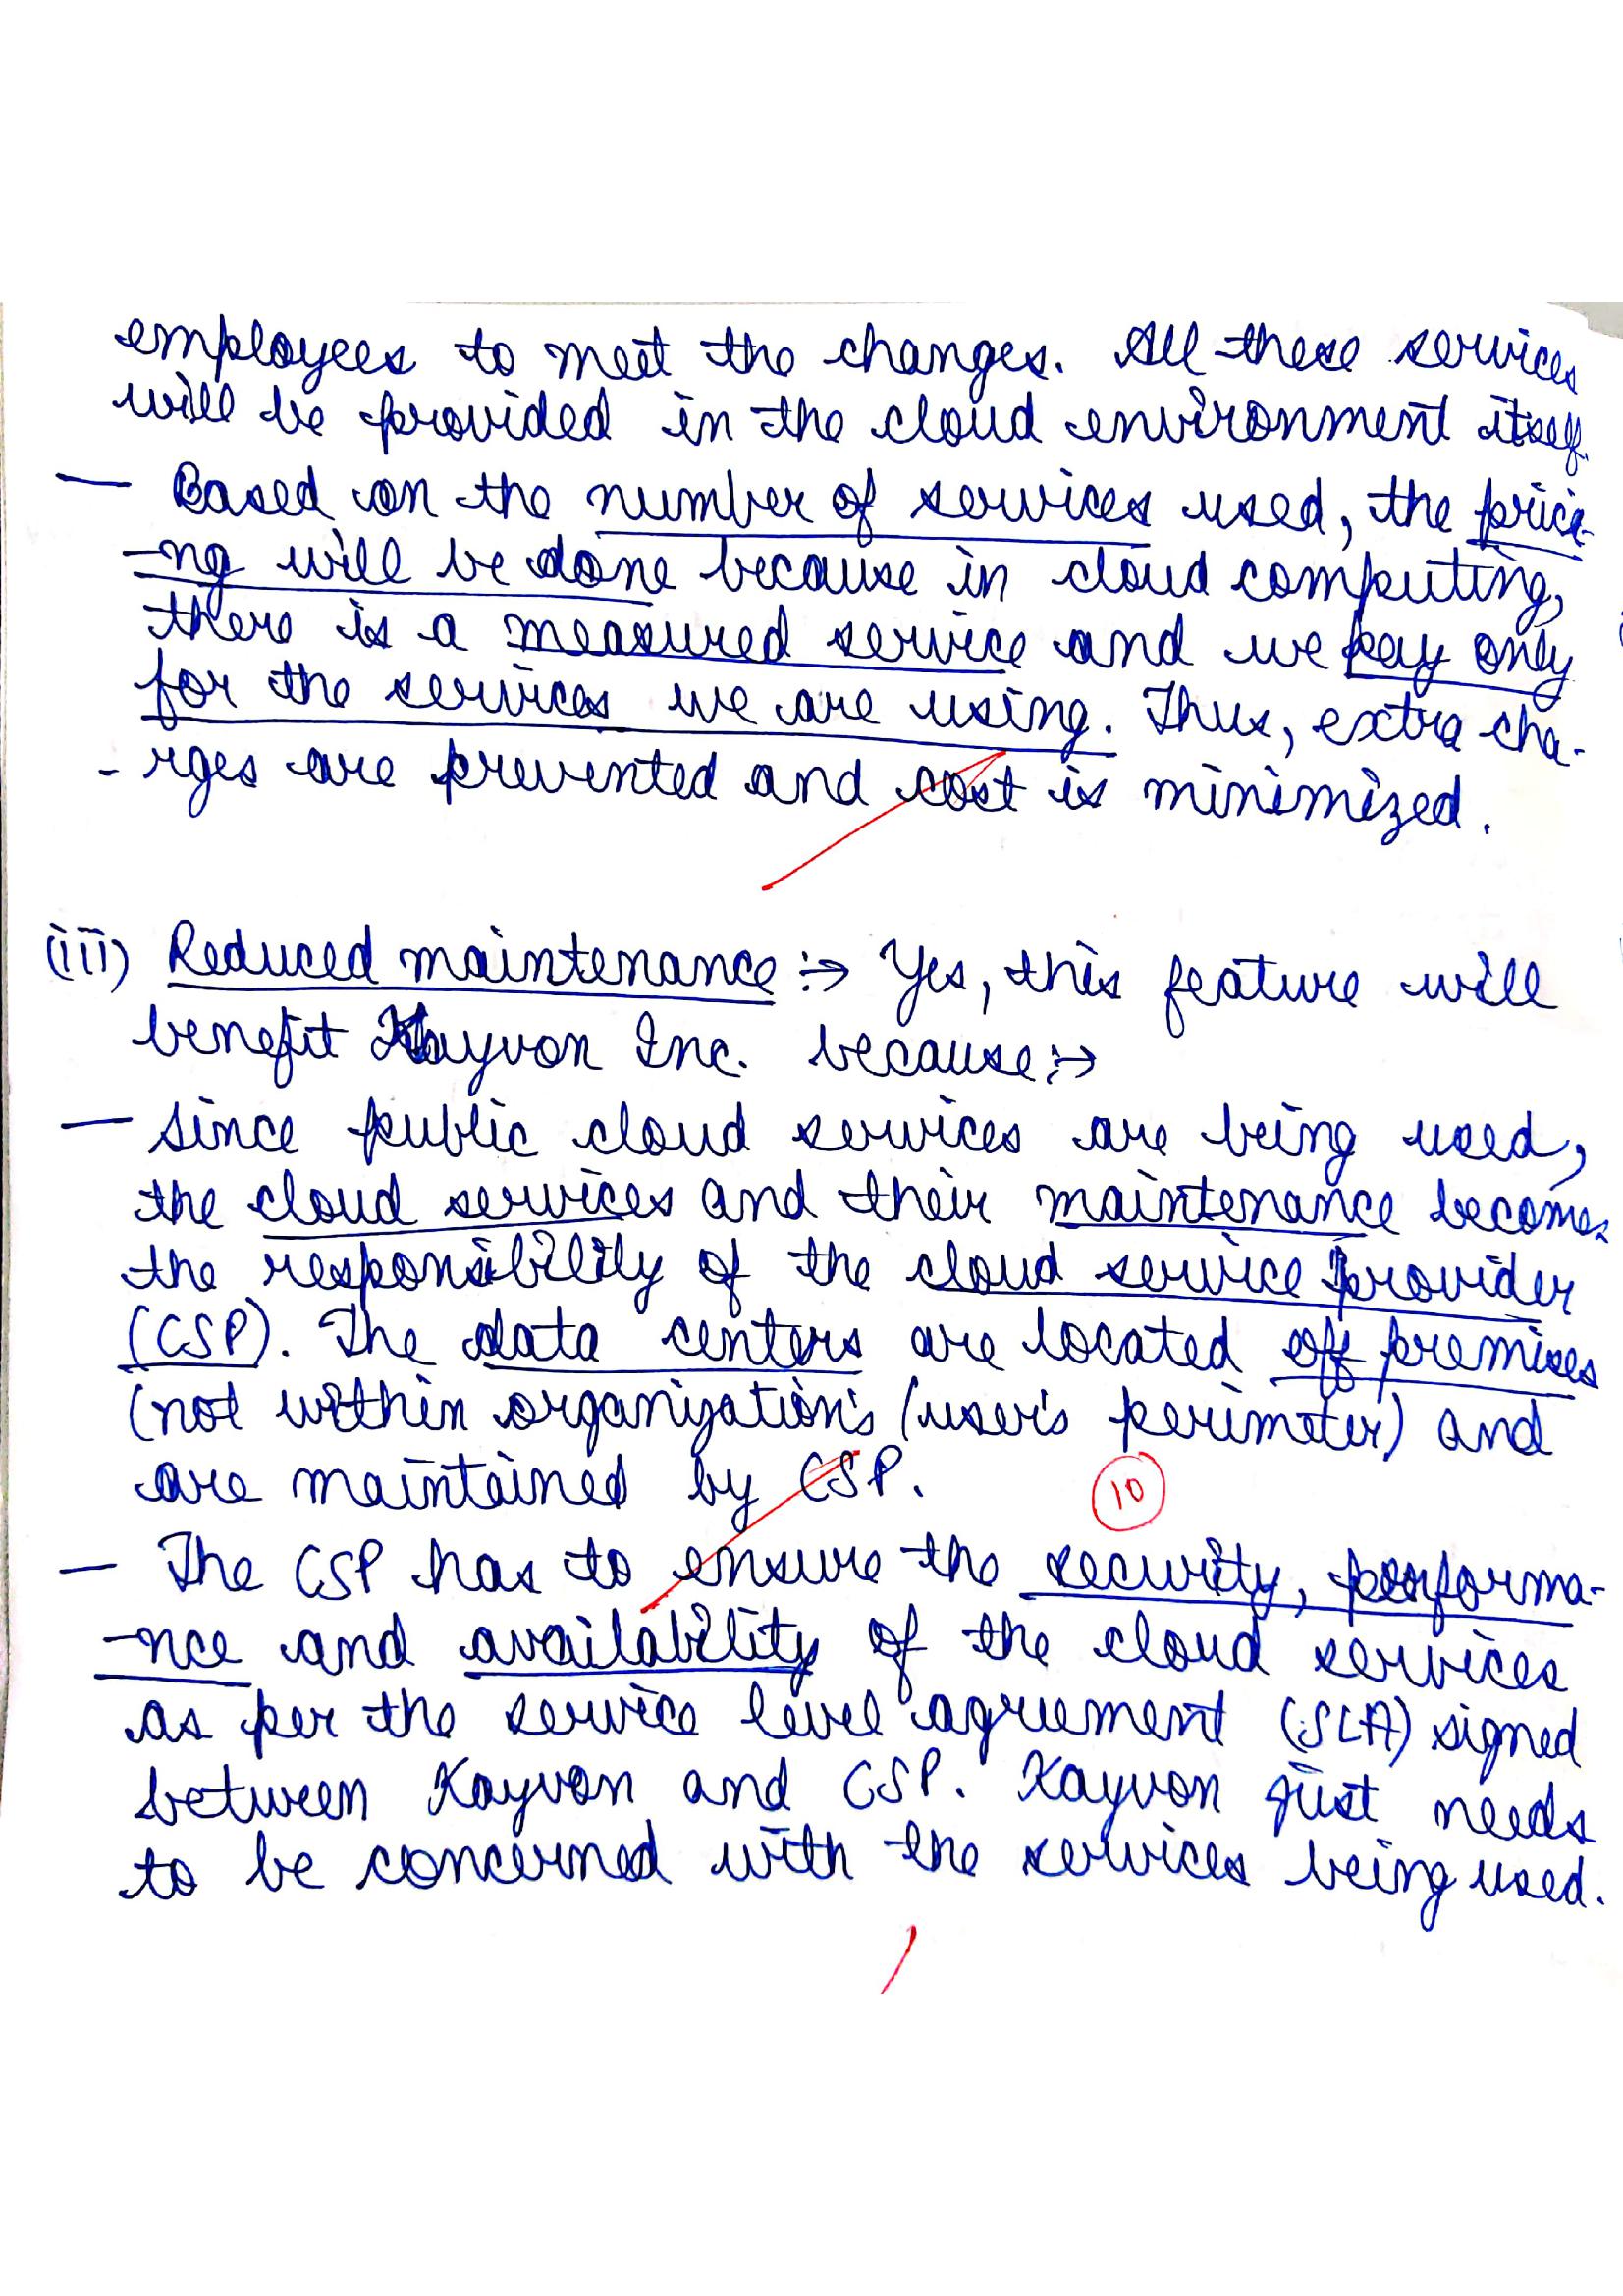 employees to meet the changes. All these services
will be provided in the cloud environment itself.
— Based on the number of services used, the prici-
-ng will be done because in cloud computing,
there is a measured service and we pay only
for the services we are using. Thus, extra cha-
- rges are prevented and cost is minimized.
(iii) Reduced maintenance :→ Yes, this feature will
benefit Kayvon Inc. because :→
— Since public cloud services are being used,
the cloud services and their maintenance becomes
the responsibility of the cloud service provider
(CSP). The data centers are located off premises
(not within organization's /user's perimeter) and
are maintained by CSP.
10
— The CSP has to ensure the security, performa-
-nce and availability of the cloud services
as per the service level agreement (SLA) signed
between Kayvon and CSP. Kayvon just needs
to be concerned with the services being used.